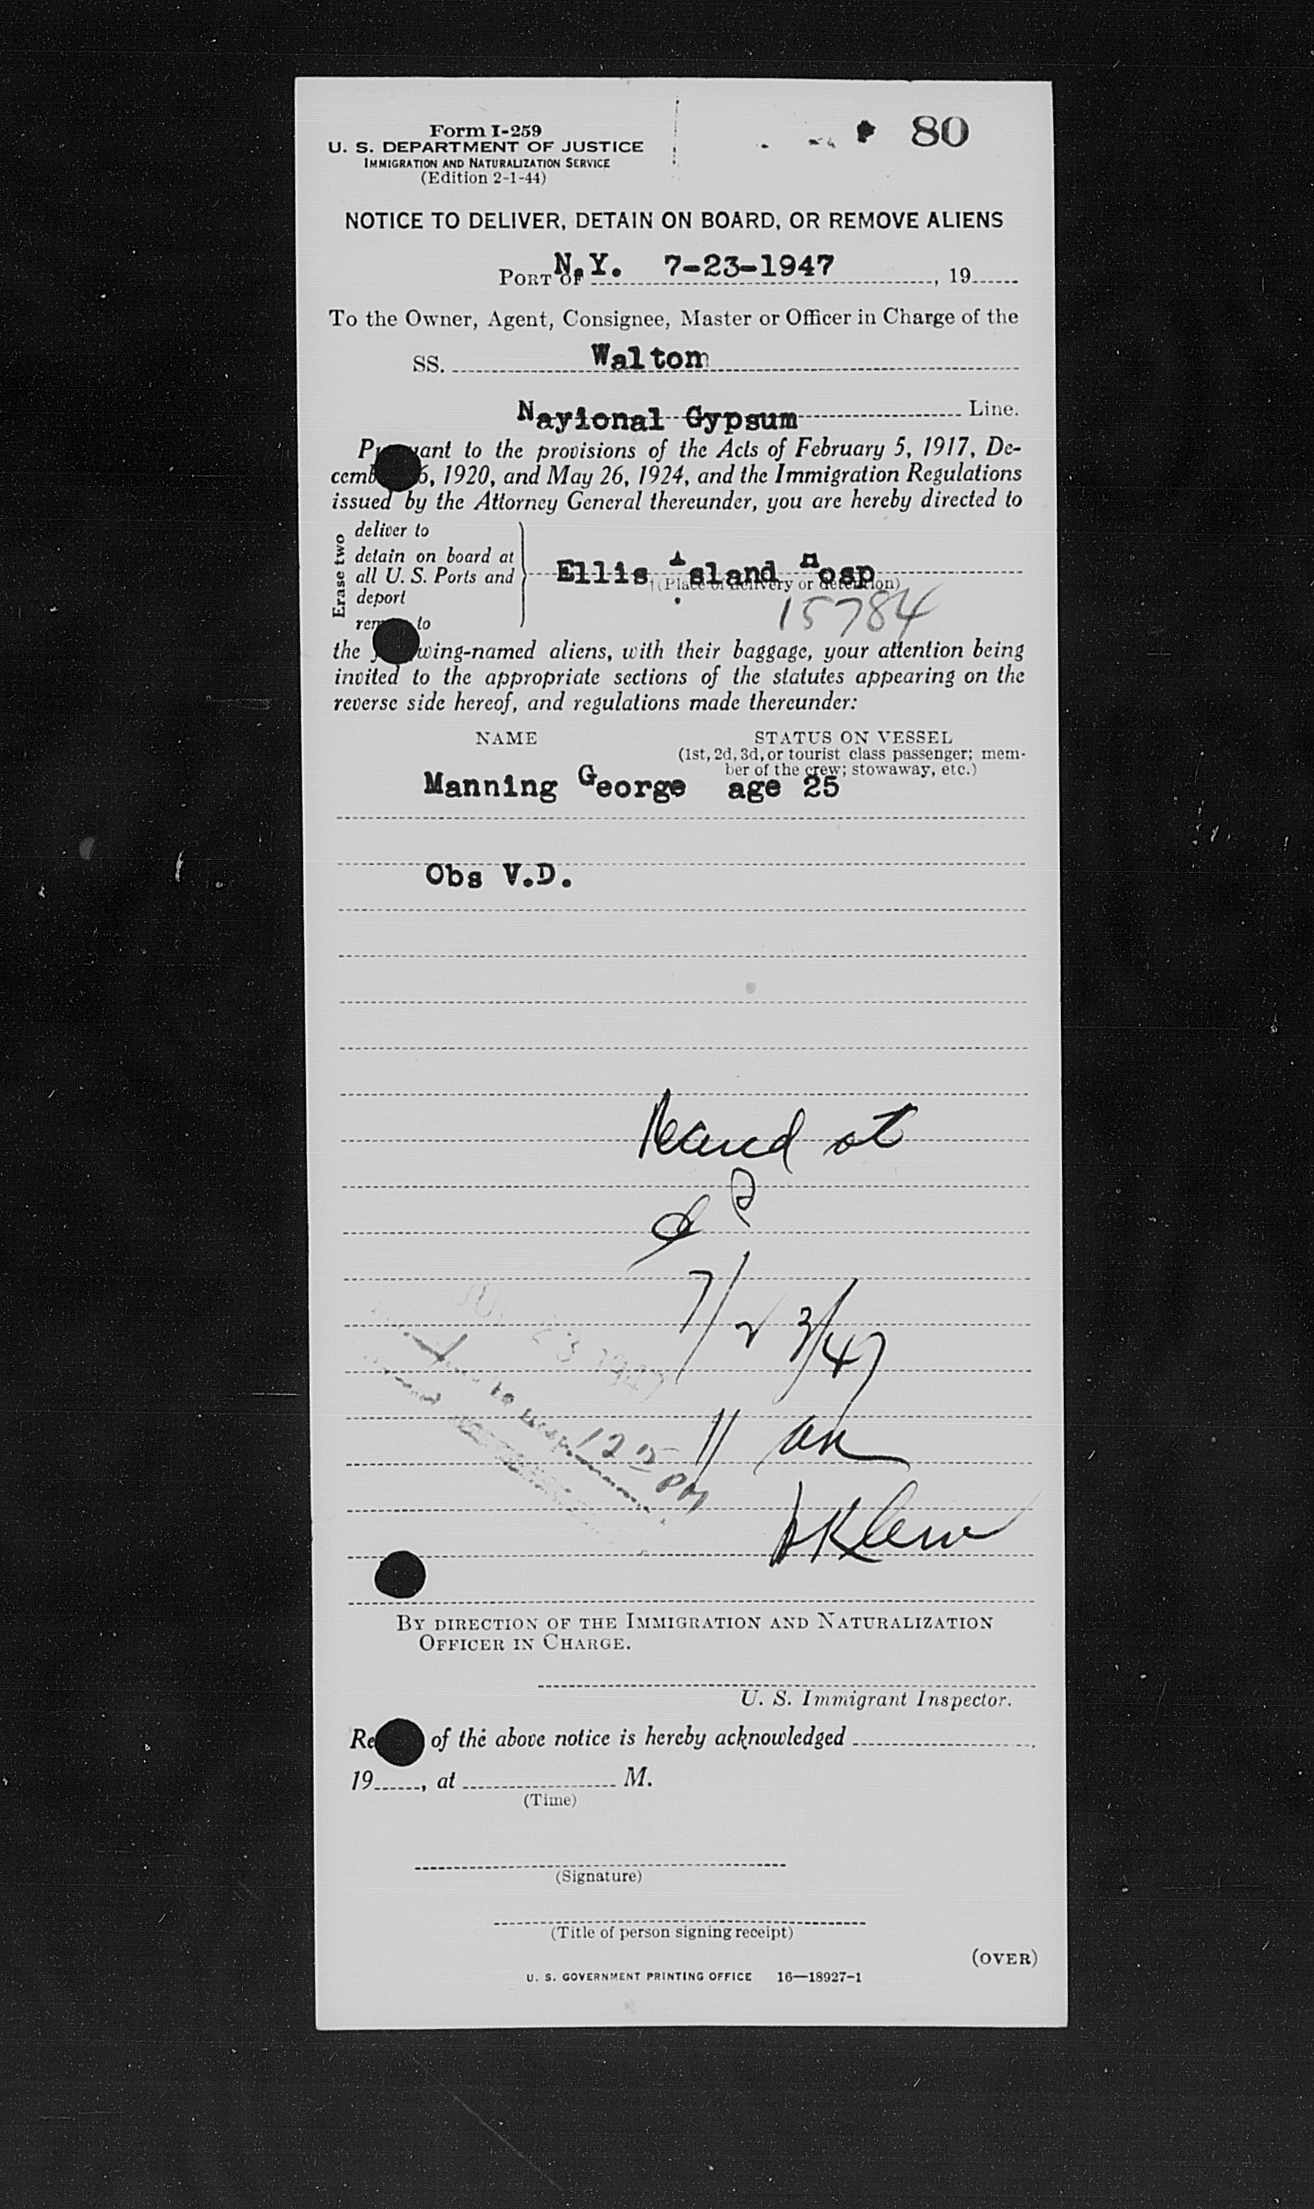 Form I-259
80
U. S. DEPARTMENT OF JUSTICE
IMMIGRATION AND NATURALIZATION SERVICE
(Edition 2-1-44)
NOTICE TO DELIVER, DETAIN ON BOARD, OR REMOVE ALIENS
PORT OF N.Y. 7-23-1947, 19
To the Owner, Agent, Consignee, Master or Officer in Charge of the
SS. Walton
Nayional Gypsum Line.
to the provisions of the Acts of February 5, 1917, De-
6, 1920, and May 26, 1924, and the Immigration Regulations
issued by the Attorney General thereunder, you are hereby directed to
Erase two
deliver to
detain on board at
all U. S. Ports and
deport
to
Ellis Island Hosp
(Place of delivery or detention)
15784
the following-named aliens, with their baggage, your attention being
invited to the appropriate sections of the statutes appearing on the
reverse side hereof, and regulations made thereunder:
NAME STATUS ON VESSEL
(1st, 2d, 3d, or tourist class passenger; mem-
ber of the crew; stowaway, etc.)
Manning George age 25
Obs V.D.
at
7/23/47
23 1947
to
12 15 PM
11 am
Klein
BY DIRECTION OF THE IMMIGRATION AND NATURALIZATION
OFFICER IN CHARGE.
U. S. Immigrant Inspector.
of the above notice is hereby acknowledged
19, at M.
(Time)
(Signature)
(Title of person signing receipt)
(OVER)
U. S. GOVERNMENT PRINTING OFFICE 16—18927-1